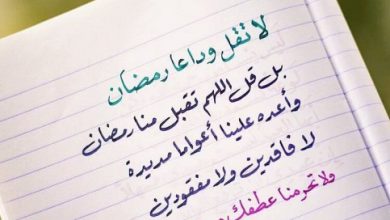 لا تقل وداعا رمضان
بل قل اللهم تقبل منا رمضان
وأعده علينا أعواما مديدة
لا فاقدين ولا مفقودين
ولا تحرمنا عطفك